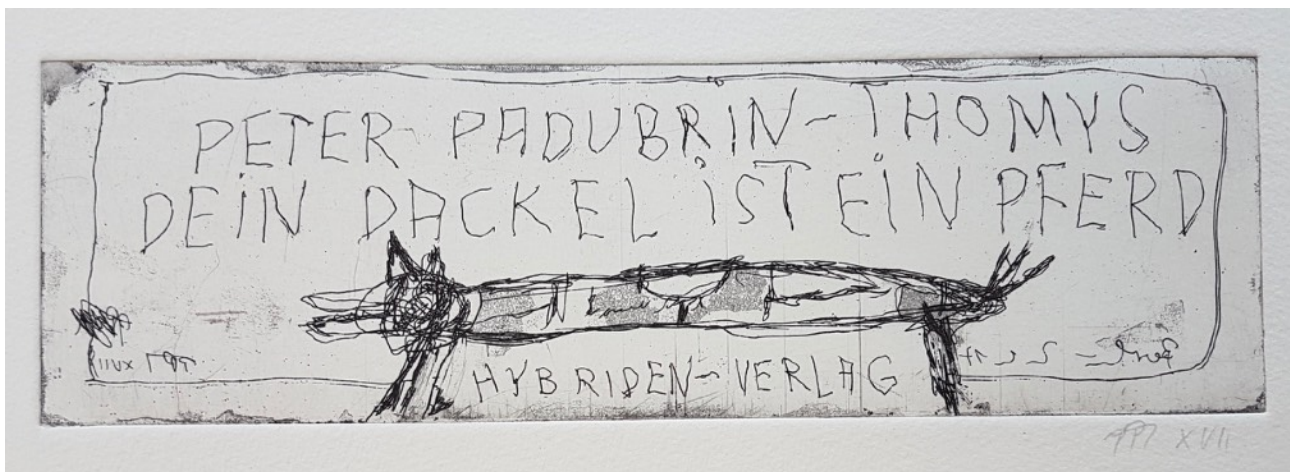 PETER PADUBRIN-THOMYS
DEIN DACKEL iST EiN PFERD
HYBRIDEN-VERLAG
XVII